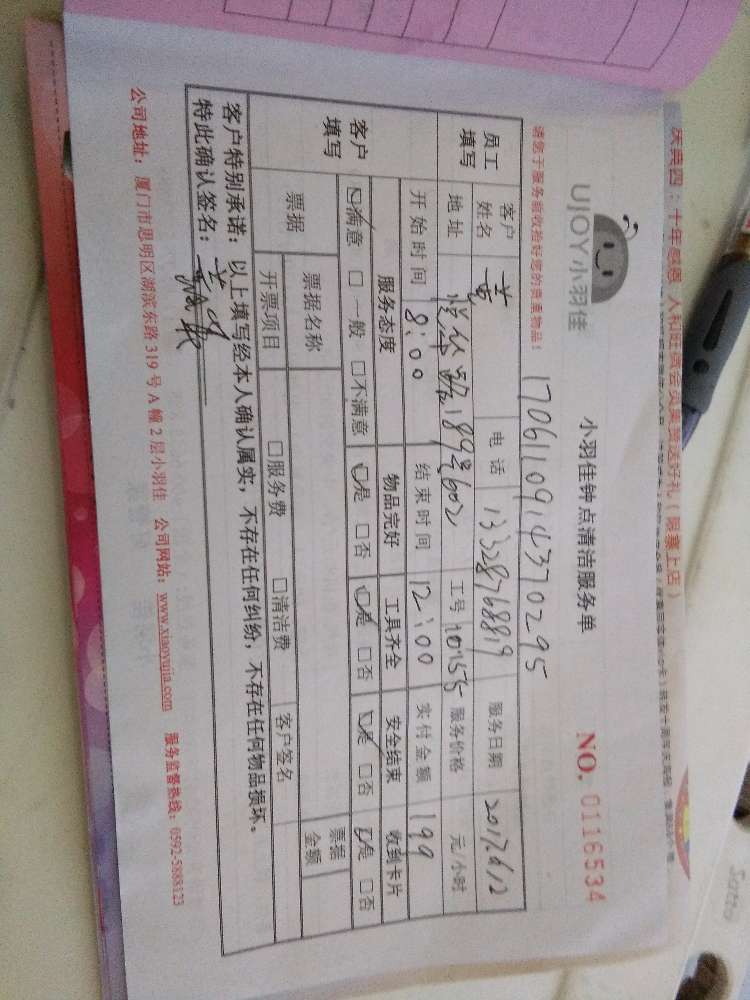 庆典四：十年感恩 人和旺
UJOY小羽佳
小羽佳钟点清洁服务单
NO. 0116534
请您于服务前收拾好您的贵重物品！
170611091437 0295
员工填写 客户姓名 黄 电话 13328768819 服务日期 2017.6.12
地址 189号602 工号 服务价格 元/小时
开始时间 8:00 结束时间 12:00 实付金额 199
客户填写 服务态度 物品完好 工具齐全 安全结束 收到卡片
☑满意 □一般 □不满意 ☑是 □否 ☑是 □否 ☑是 □否 ☑是 □否
票据 票据名称 票据金额
开票项目 □服务费 □清洁费 客户签名
客户特别承诺：以上填写经本人确认属实，不存在任何纠纷，不存在任何物品损坏。
特此确认签名：
公司地址：厦门市思明区湖滨东路319号A幢2层小羽佳 公司网站：www.xiaoyujia.com 服务监督热线：0592-5888123